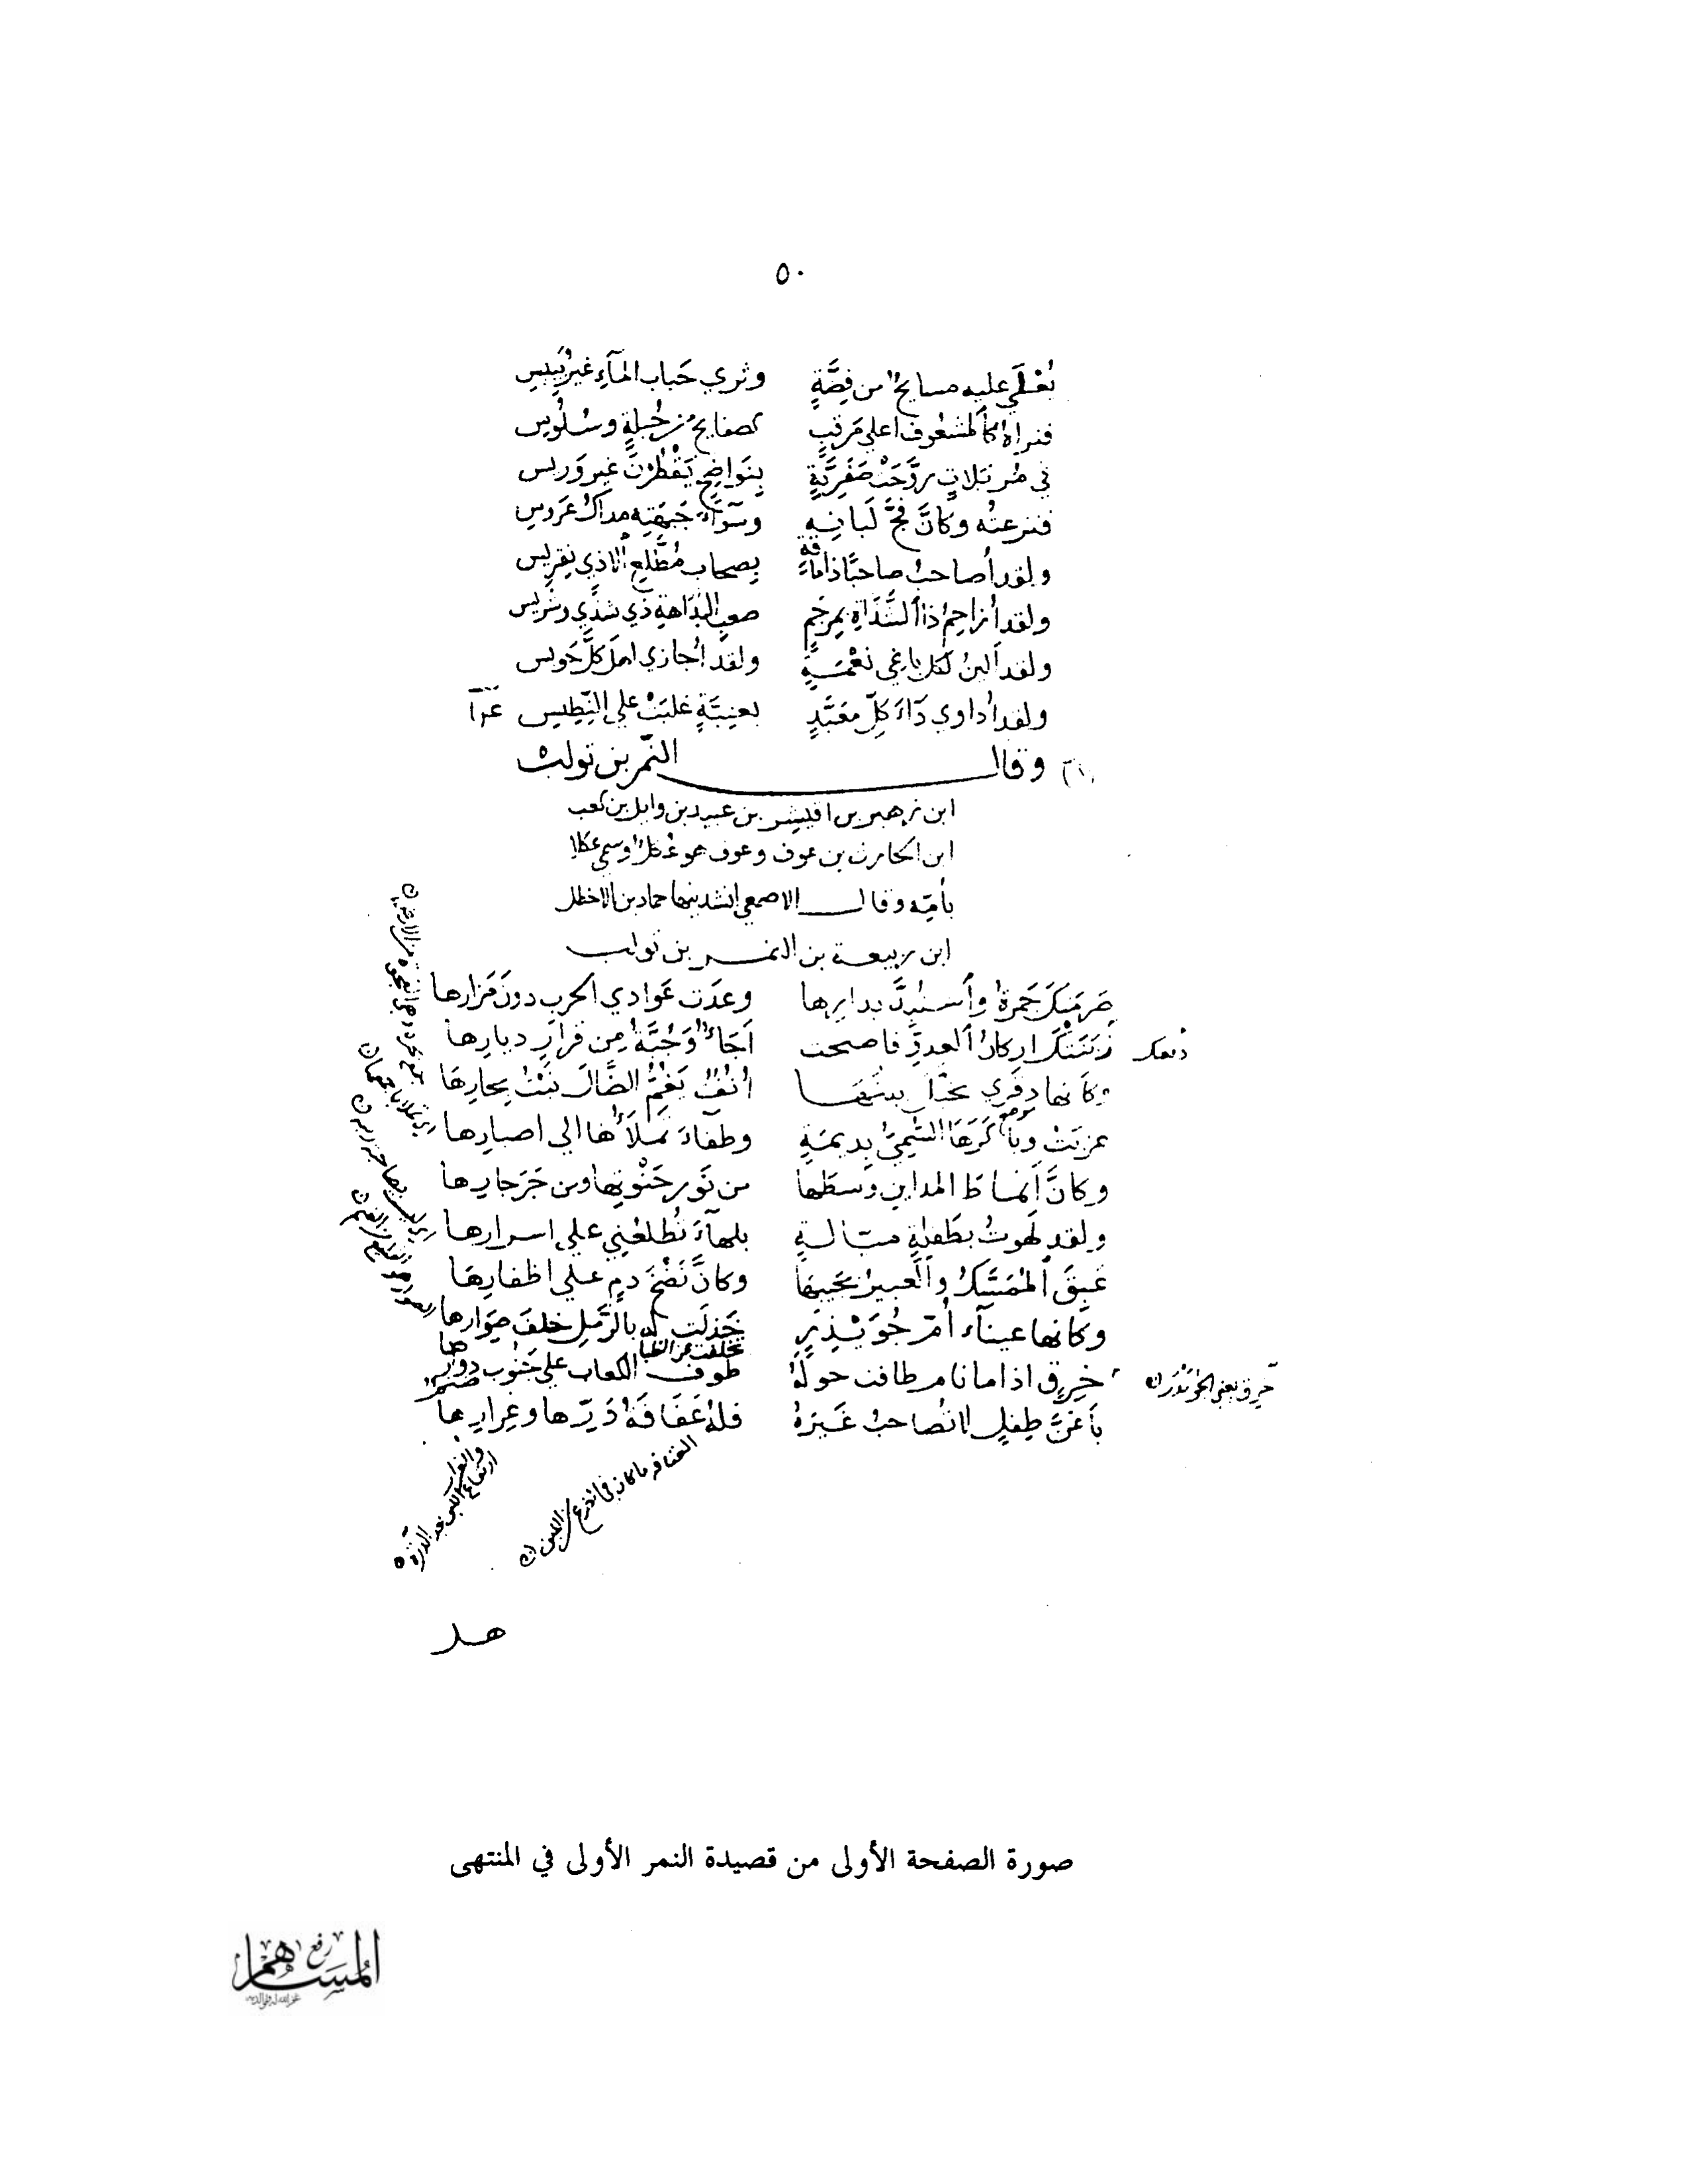 ٥٠
تُعْلَى عليه مسايح من فِضَّةٍ وثرى حَباب المآءِ غير يَبيسِ
فتراه كالمشعوف اعلى مَرقبٍ كصفايح من حُبلةٍ وسُلُوسِ
في مُرْبَلاتٍ روَّحَتْ صَفَريَّةٍ بنَواضحٍ يَقْطُرْنَ غير وَريس
فنزعتُه وكأنَّ فجَّ لَبانِه وسَوآءَ جَبهتِه مداكُ عَروسِ
ولقد أُصاحبُ صاحبًا ذا ماقةٍ بصحاب مُطَّلِعِ الاذى نِقريس
ولقد أُزاحمُ ذا الشَّذاةِ بمِزحَمٍ صعبِ البُدَاهةِ ذي شذًى وشَريس
ولقد ألينُ لكل باغي نعْمَةٍ ولقد أُجازي اهل كلّ حَويس
ولقد أُداوي دَآءَ كلّ معَبَّدٍ بعنِيَّةٍ غلبَتْ على النِّطِّيس
وقال النَّمر بن تولب
ابن زهير بن اقيشر بن عبيد بن وايل بن كعب
ابن الحارث بن عوف وعوف هو عُكل وسمي عكلا
بأَمَةٍ وقال الاصمعي انشدنيها حماد بن الاخطل
ابن ربيعة بن النمر بن تولب
صَرمَتكَ جَمرةُ وأستبدَّ بدارِها وعدَت عَوادي الحرب دونَ مَزارها
زبَنَتكَ اركانُ العدوّ فاصبحت أجَأٌ وجُبَّةُ مِن قرارِ ديارِها
وكأنها دقَرى تخَايَل نبتُهَا اُنُفٌ يَغُمُّ الضَّالَ نَبْتُ بحارِها
عزبَتْ وباكَرَهَا الشتيُّ بديمةٍ وطفآءَ تملأُها الى اصبارها
وكأنَّ أنماطَ المداين وسطَها من نَور حَنْوتِها ومن جَرجارِها
ولقد لهوتُ بطَفلةٍ ميّالةٍ بلهآءَ تُطلعُني على اسرارها
عَبِقَ المُمَسَّكُ والعبيرُ بجَيبِهَا وكأنَّ نَضْخَ دمٍ على اظفارِها
وكأنها عينآء أمّ جُوَيذِرٍ خذلَت له بالرَّملِ خلفَ صِوَارها
خَرِقٍ اذا ما نام طافت حولهُ طوف الكعاب على جَنوبِ دوارها
بأغنَّ طِفلٍ لا تُصاحبُ غَيرَهُ فلهُ عُفافَةُ دَرّها وغِرارِها
خرق يعني الجؤذر
العفافة ما كان في الضرع من اللبن
والغرار
ارتفاع اللبن بعد الدرة
صورة الصفحة الأولى من قصيدة النمر الأولى في المنتهى
رفع المساهم
غفر الله له ولوالديه